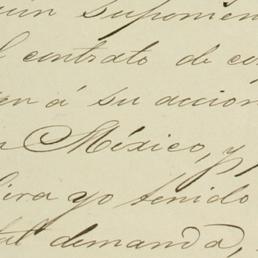 suponien
l contrato de co
en á su accion
n México, y
biera yo tenido
tal demanda,